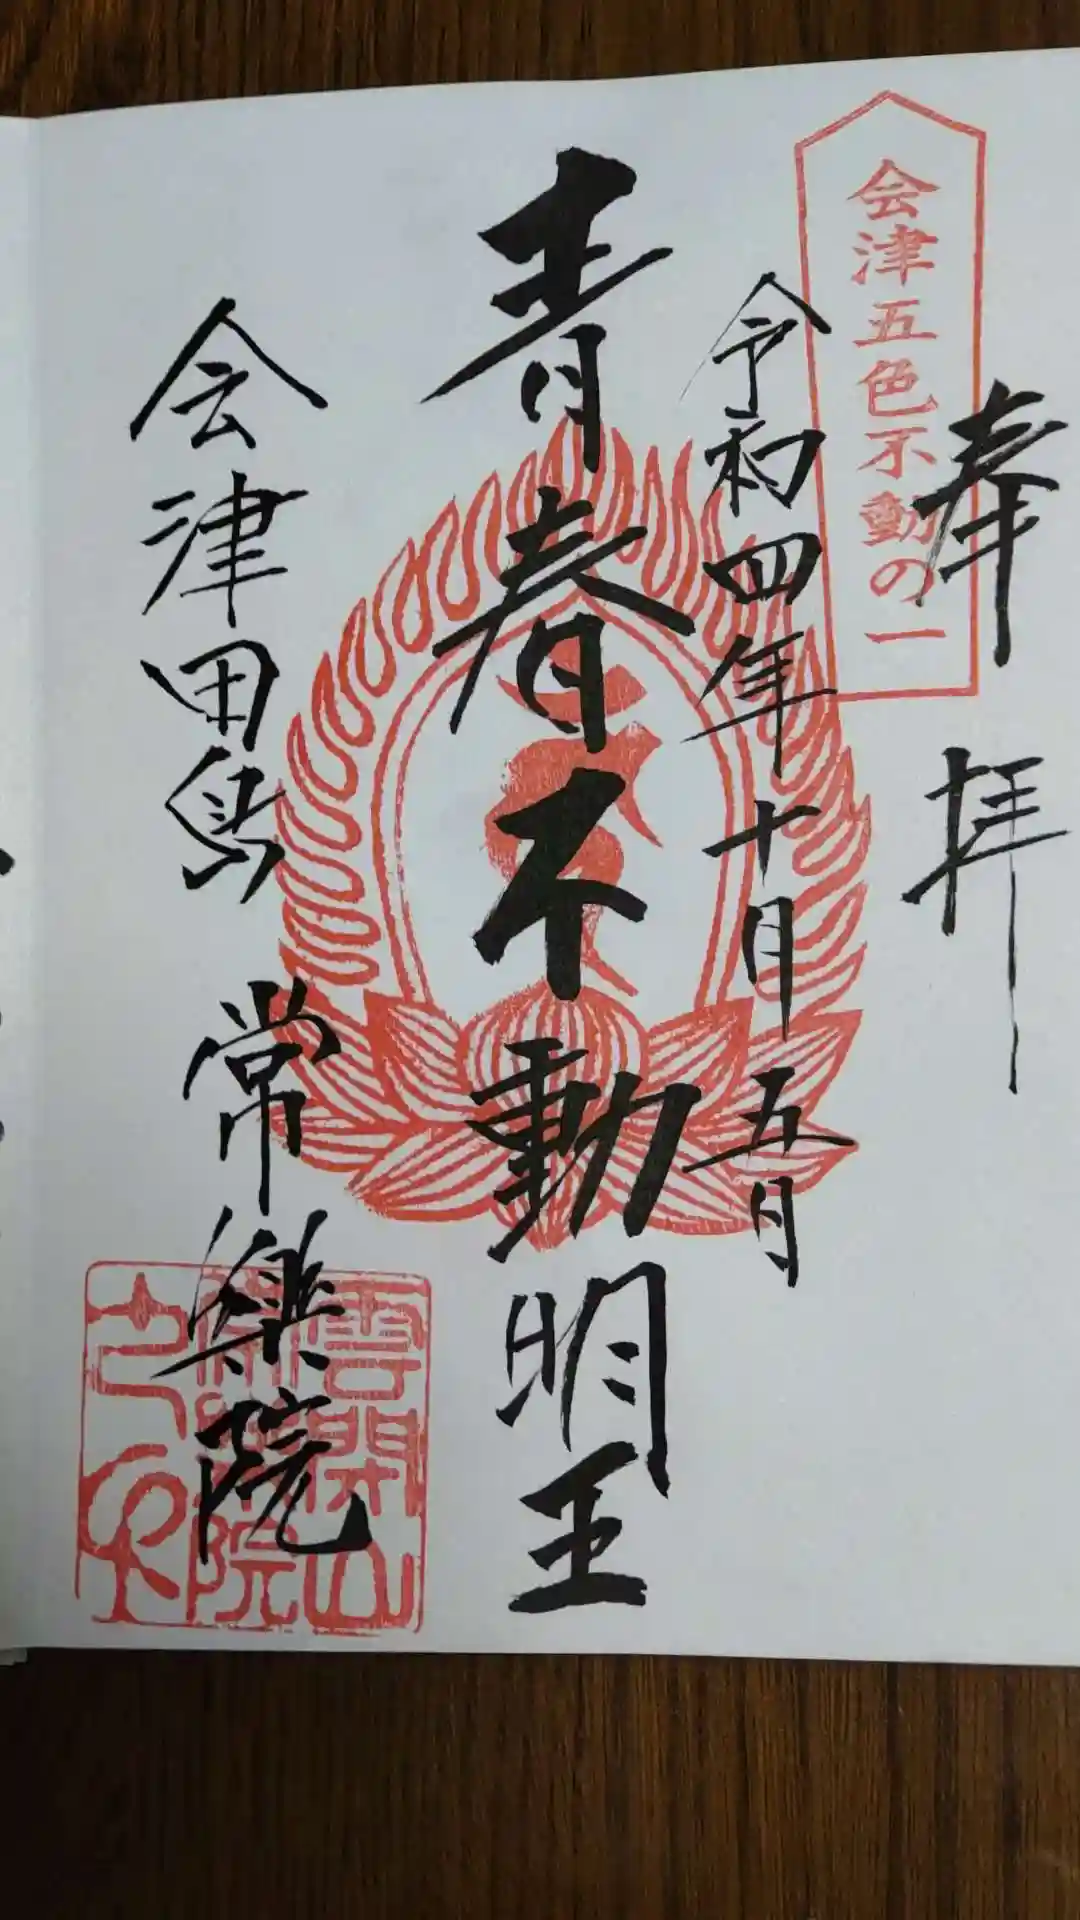 会津五色不動の一
奉拝
令和四年十月五日
青春不動明王
会津田島 常樂院
雲閣山
常樂院
之印